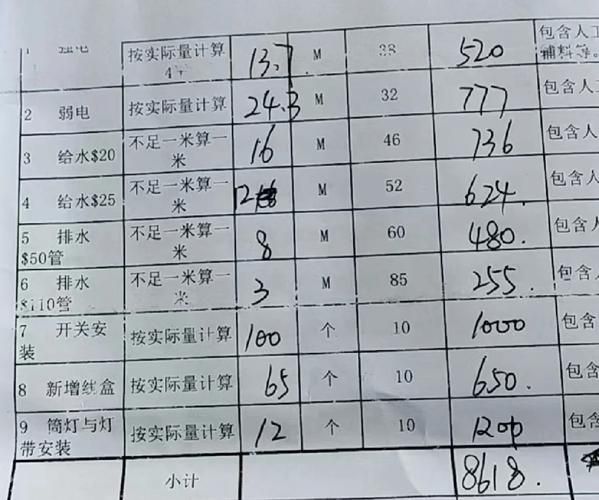 1 强电 按实际量计算 13.7 M 38 520 包含人工
4+ 辅料等。
2 弱电 按实际量计算 24.3 M 32 777 包含人工
3 给水$20 不足一米算一米 16 M 46 736 包含人
4 给水$25 不足一米算一米 12 M 52 624. 包含人
5 排水$50管 不足一米算一米 8 M 60 480. 包含人
6 排水$110管 不足一米算一米 3 M 85 255. 包含人
7 开关安装 按实际量计算 100 个 10 1000 包含
8 新增线盒 按实际量计算 65 个 10 650. 包含
9 筒灯与灯带安装 按实际量计算 12 个 10 1200 包含
小计 8618.